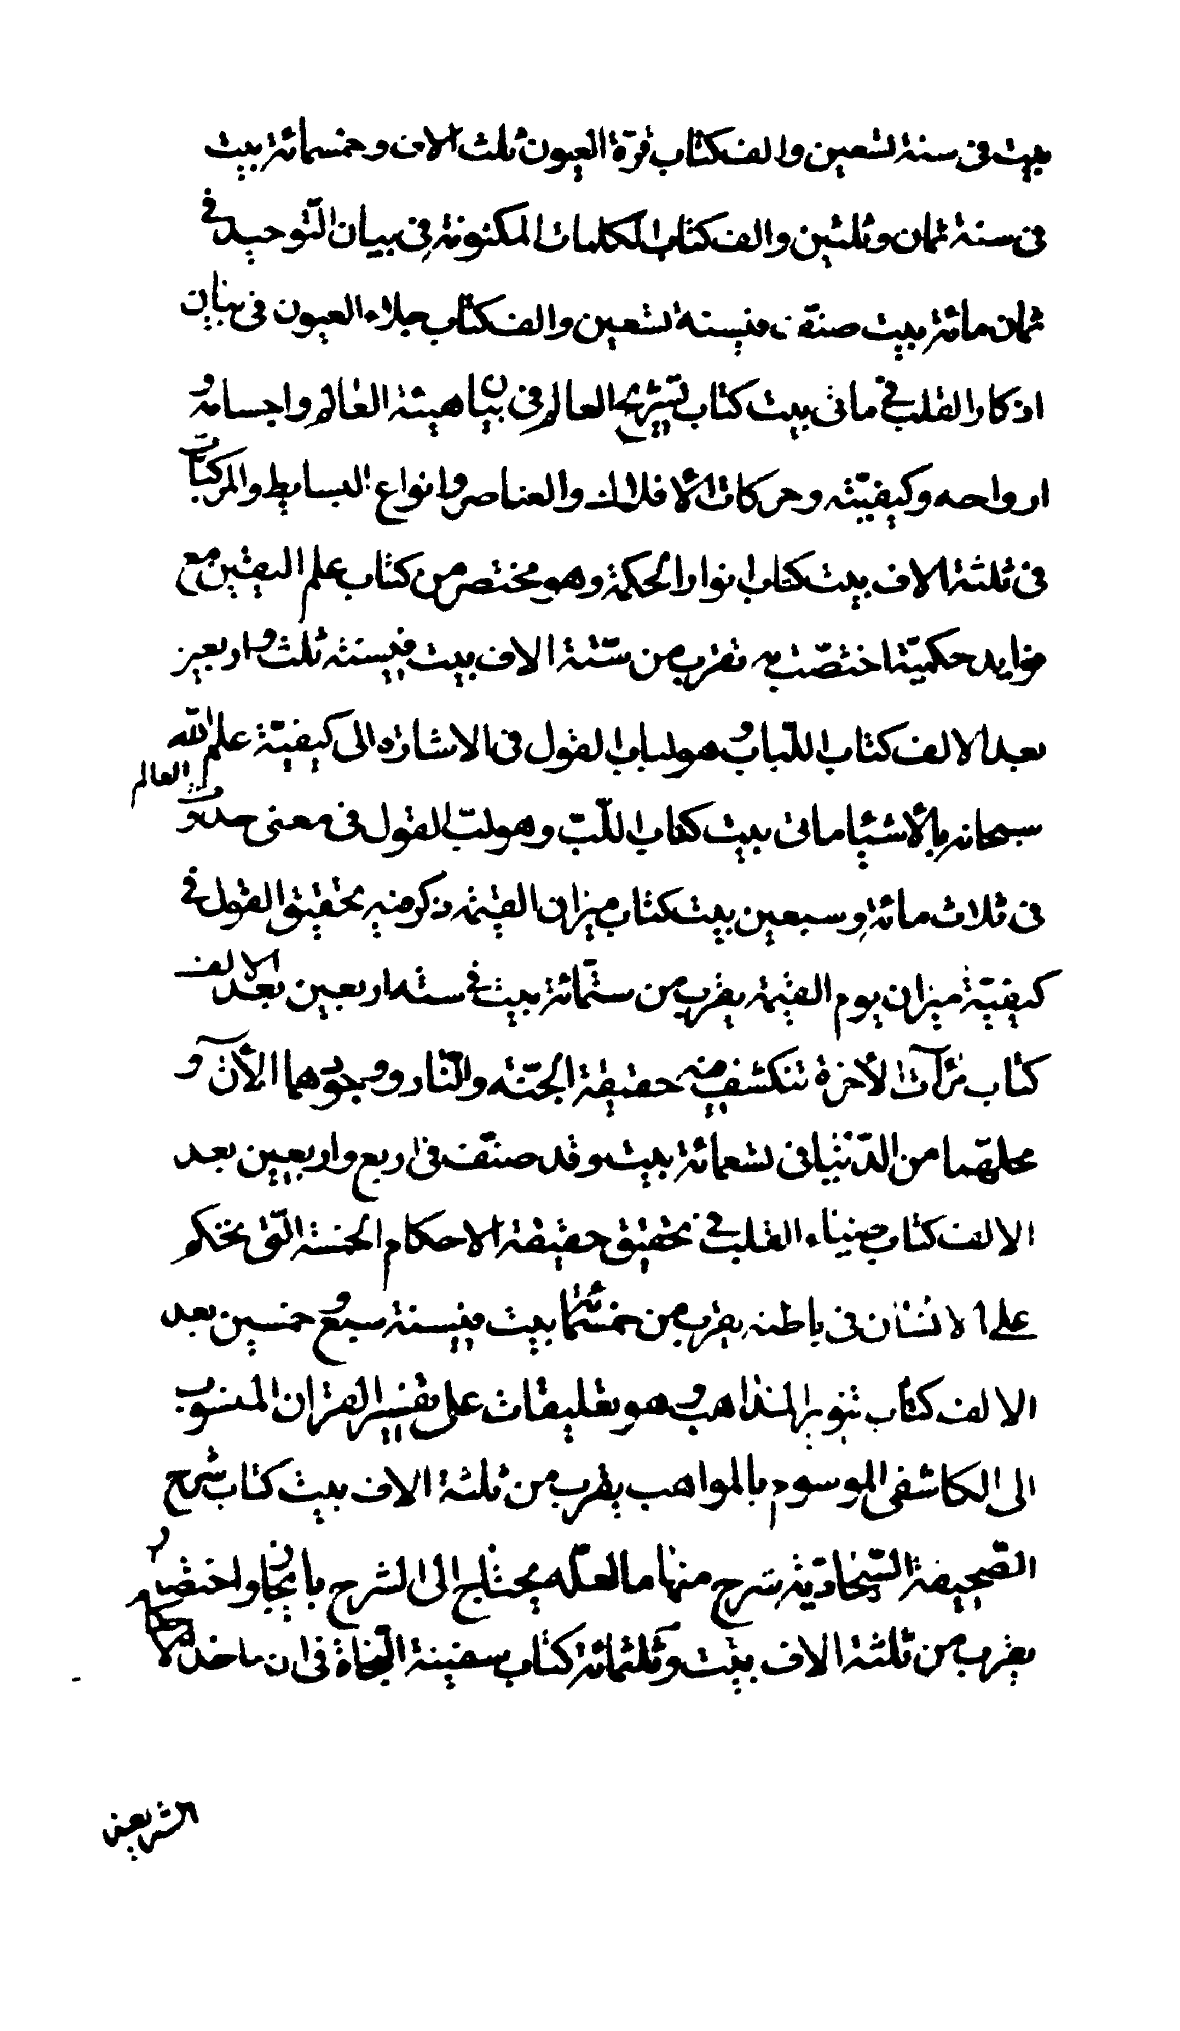 بيت في سنة تسعين والف كتاب قرة العيون ثلث الاف وخمسمائة بيت
في سنة ثمان وثلثين والف كتاب الكلمات المكنونة في بيان التّوحيد في
ثمان مائة بيت صنّف في سنة تسعين والف كتاب جلاء العيون في بيان
اذكار القلب في مائتي بيت كتاب تشريح العالم في بيان هيئة العالم واجسامه و
ارواحه وكيفيّته وحركات الأفلاك والعناصر وانواع البسايط والمركبات
في ثلثة الاف بيت كتاب انوار الحكمة وهو مختصر من كتاب علم اليقين مع
فوايد حكميّة اختصّت به تقرب من ستّة الاف بيت في سنة ثلث واربعين
بعد الالف كتاب اللّباب وهو لباب القول في الاشارة الى كيفيّة علم الله
سبحانه بالأشياء مائتي بيت كتاب اللّب وهو لبّ القول في معنى حدوث العالم
في ثلاث مائة وسبعين بيت كتاب ميزان القيمة ذكر فيه تحقيق القول في
كيفيّة ميزان يوم القيمة يقرب من ستّمائة بيت في سنة اربعين بعد الالف
كتاب مرآت الأخرة تنكشف منه حقيقة الجنّة والنّار ووجودهما الأن و
محلهّما من الدّنيا في تسعمائة بيت وقد صنّف في اربع واربعين بعد
الالف كتاب ضياء القلب في تحقيق حقيقة الاحكام الخمسة الّتي تحكم
على الانسان في باطنه يقرب من خمسمائة بيت في سنة سبع وخمسين بعد
الالف كتاب تنوير المذاهب وهو تعليقات على تفسير القران المنسوب
الى الكاشفي الموسوم بالمواهب يقرب من ثلثة الاف بيت كتاب شرح
الصّحيفة السّجاديّة شرح منها ما لعلّه يحتاج الى الشرح بايجاز واختصار
يقرب من ثلثة الاف بيت وثلثمائة كتاب سفينة النّجاة في ان ماخذ الاحكام
الشرعية